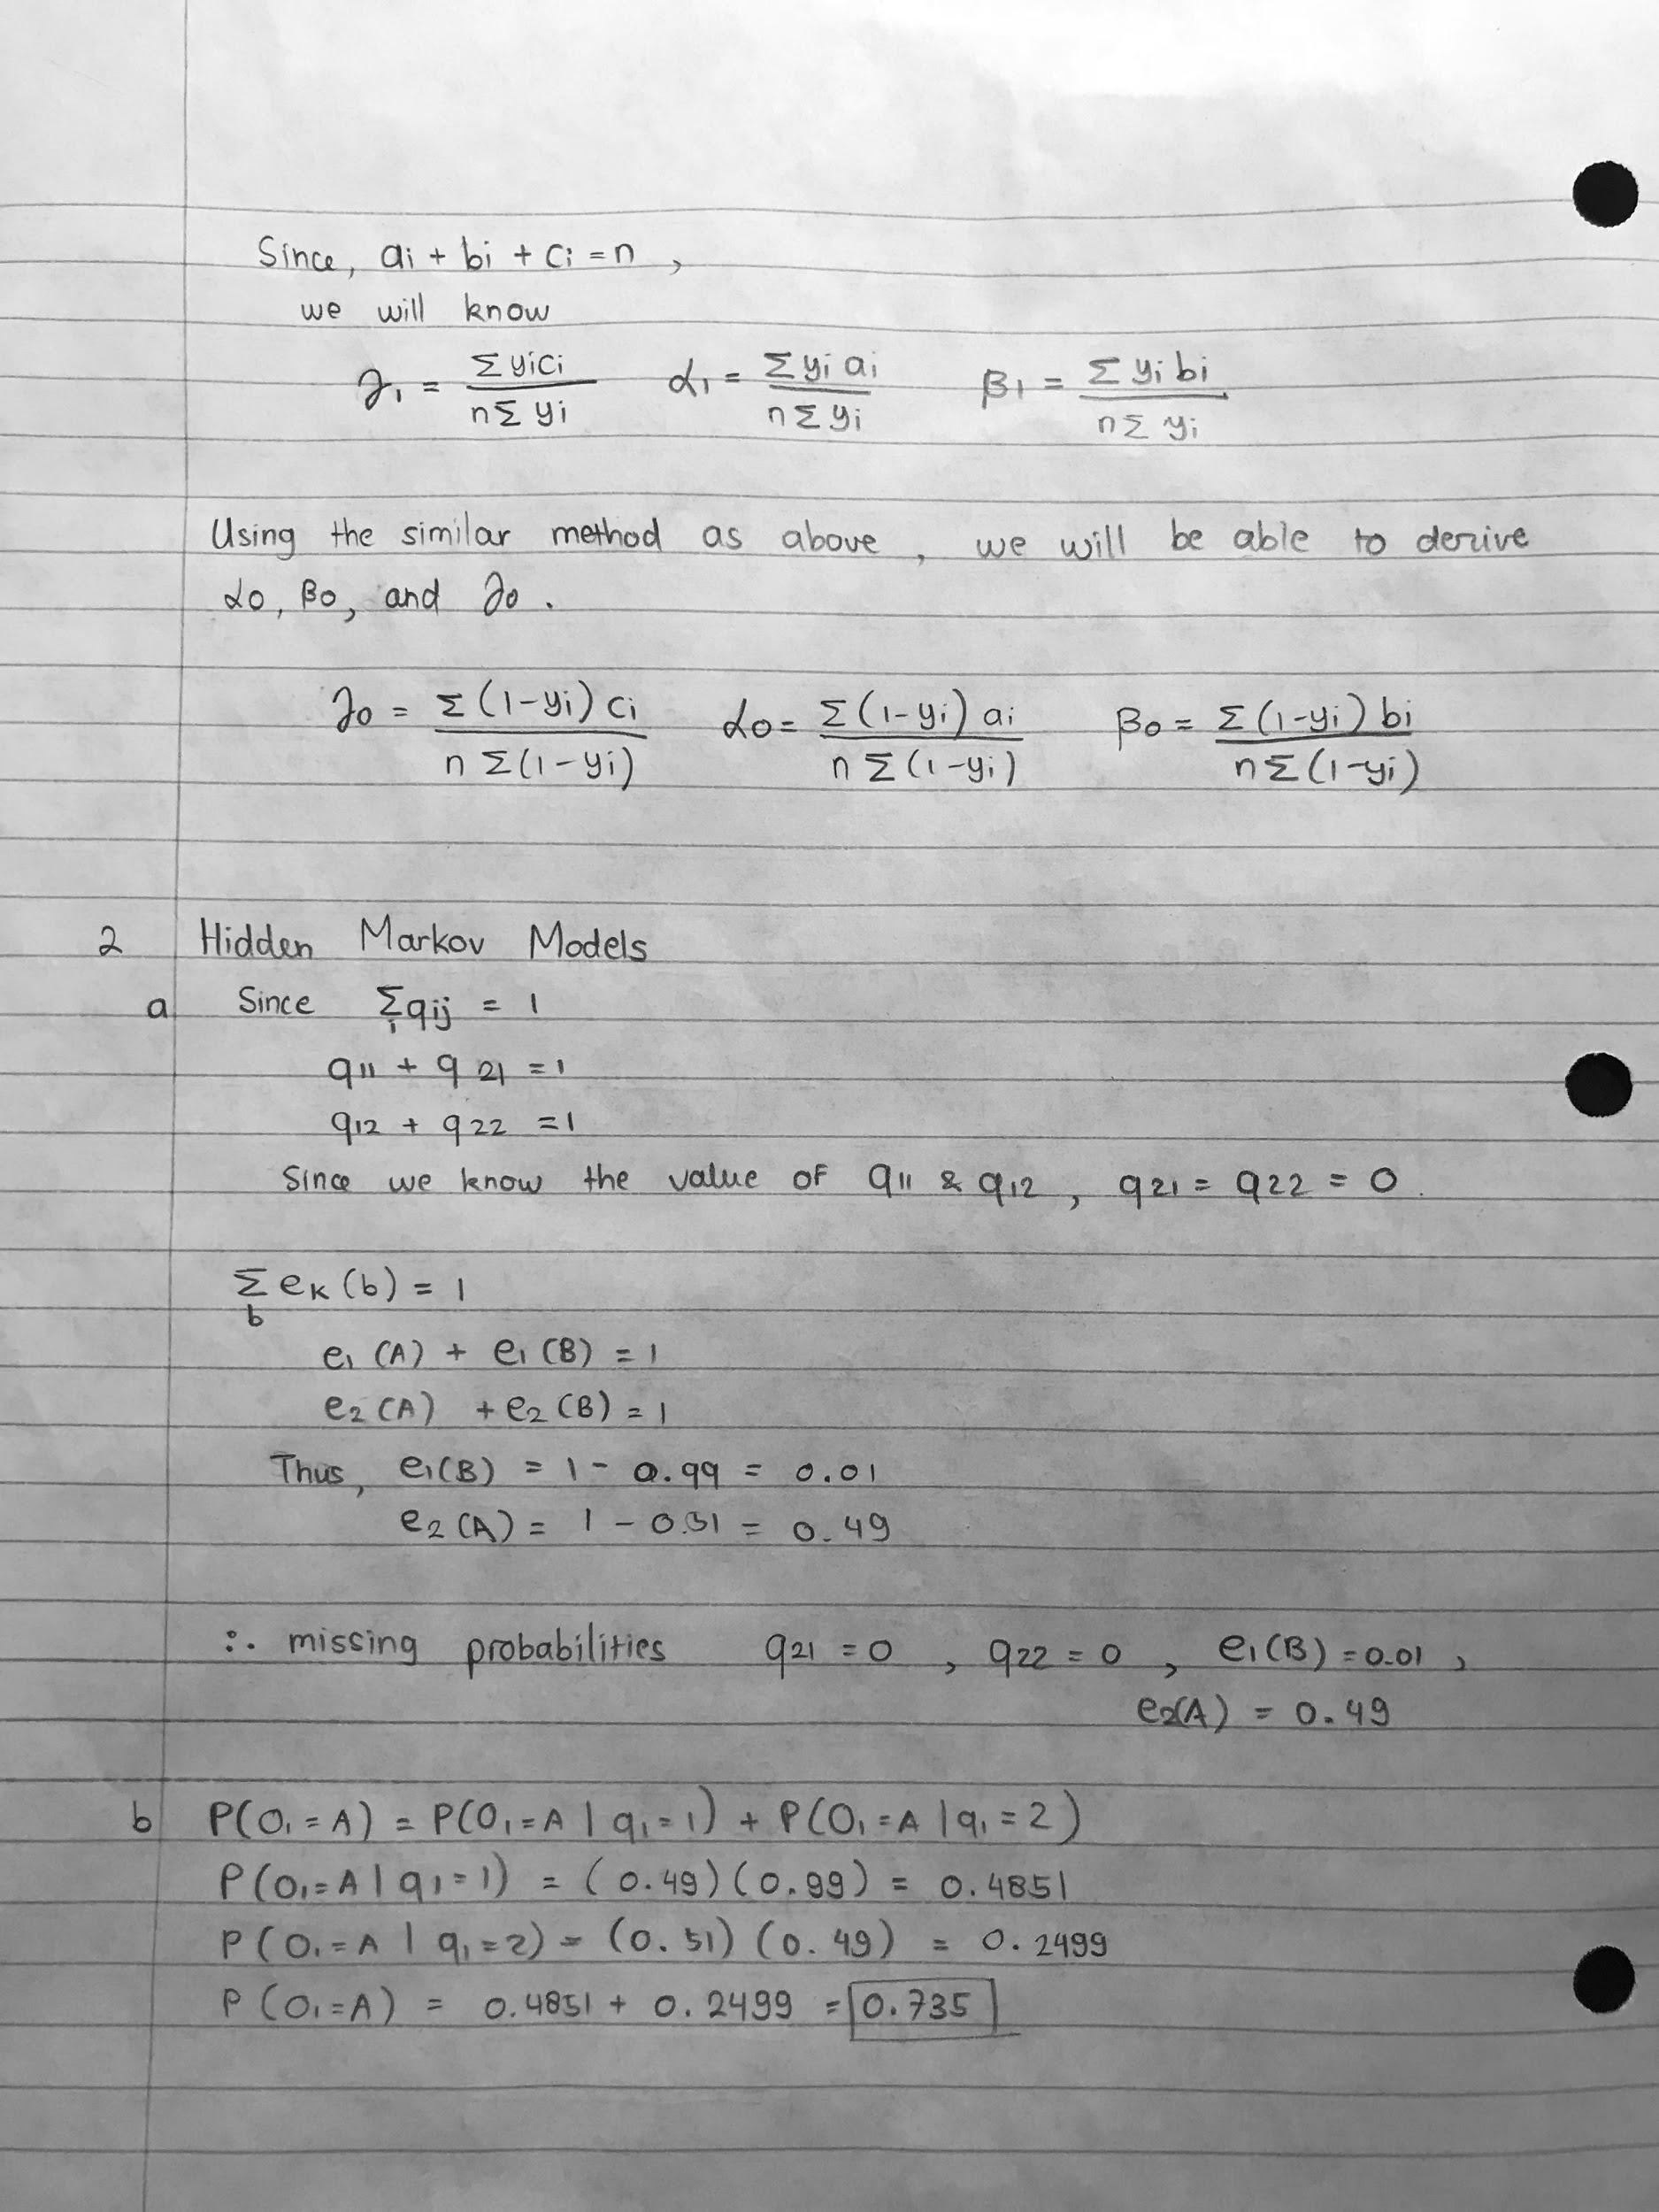 Since, ai + bi + ci = n ,
we will know
γ1 = Σ yici / nΣ yi    α1 = Σ yi ai / nΣ yi    β1 = Σ yi bi / nΣ yi
Using the similar method as above , we will be able to derive
α0, β0, and γ0 .
γ0 = Σ(1-yi) ci / n Σ(1-yi)    α0 = Σ(1-yi) ai / n Σ(1-yi)    β0 = Σ(1-yi) bi / nΣ(1-yi)
2 Hidden Markov Models
a Since Σi qij = 1
q11 + q21 = 1
q12 + q22 = 1
Since we know the value of q11 & q12 , q21 = q22 = 0 .
Σb ek(b) = 1
e1 (A) + e1 (B) = 1
e2 (A) + e2 (B) = 1
Thus, e1(B) = 1 - 0.99 = 0.01
e2 (A) = 1 - 0.51 = 0.49
∴ missing probabilities q21 = 0 , q22 = 0 , e1(B) = 0.01 ,
e2(A) = 0.49
b P(O1 = A) = P(O1 = A | q1 = 1) + P(O1 = A | q1 = 2)
P(O1 = A | q1 = 1) = (0.49)(0.99) = 0.4851
P(O1 = A | q1 = 2) = (0.51)(0.49) = 0.2499
P(O1 = A) = 0.4851 + 0.2499 = 0.735